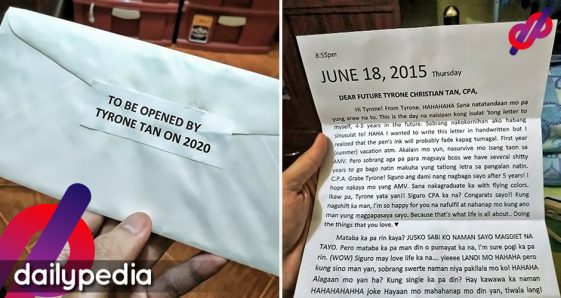 TO BE OPENED BY
TYRONE TAN ON 2020
dailypedia
8:55pm
JUNE 18, 2015 Thursday
DEAR FUTURE TYRONE CHRISTIAN TAN, CPA,
Hi Tyrone! From Tyrone. HAHAHAHA Sana natatandaan mo pa
yung araw na to. This is the day na naisipan kong isulat 'tong letter to
myself, 4-5 years in the future. Sobrang nakokornihan ako habang
sinusulat to! HAHA I wanted to write this letter in handwritten but I
realized that the pen's ink will probably fade kapag tumagal. First year
(Summer) vacation atm. Akalain mo yun, nasurvive mo isang taon sa
AMV. Pero sobrang aga pa para magsaya bcos we have several shitty
years to go bago natin makuha yung tatlong letra sa pangalan natin.
C.P.A. Grabe Tyrone! Siguro ang dami nang nagbago sayo after 5 years! I
hope nakaya mo yung AMV. Sana nakagraduate ka with flying colors.
Ikaw pa, Tyrone yata yan!! Siguro CPA ka na? Congrats sayo!! Kung
nagshift ka man, I'm so happy for you na nafulfil at nahanap mo kung ano
man yung magpapasaya sayo. Because that's what life is all about.. Doing
the things that you love. ♥
Mataba ka pa rin kaya? JUSKO SABI KO NAMAN SAYO MAGDIET NA
TAYO. Pero mataba ka pa man din o pumayat ka na, I'm sure pogi ka pa
rin. (WOW) Siguro may love life ka na.... yieeee LANDI MO HAHAHA pero
kung sino man yan, sobrang swerte naman niya pakilala mo ko! HAHAHA
Alagaan mo yan ha? Kung single ka pa din? Hay kawawa ka naman
HAHAHAHAHHA joke Hayaan mo mahahanap mo din yan, tiwala lang!